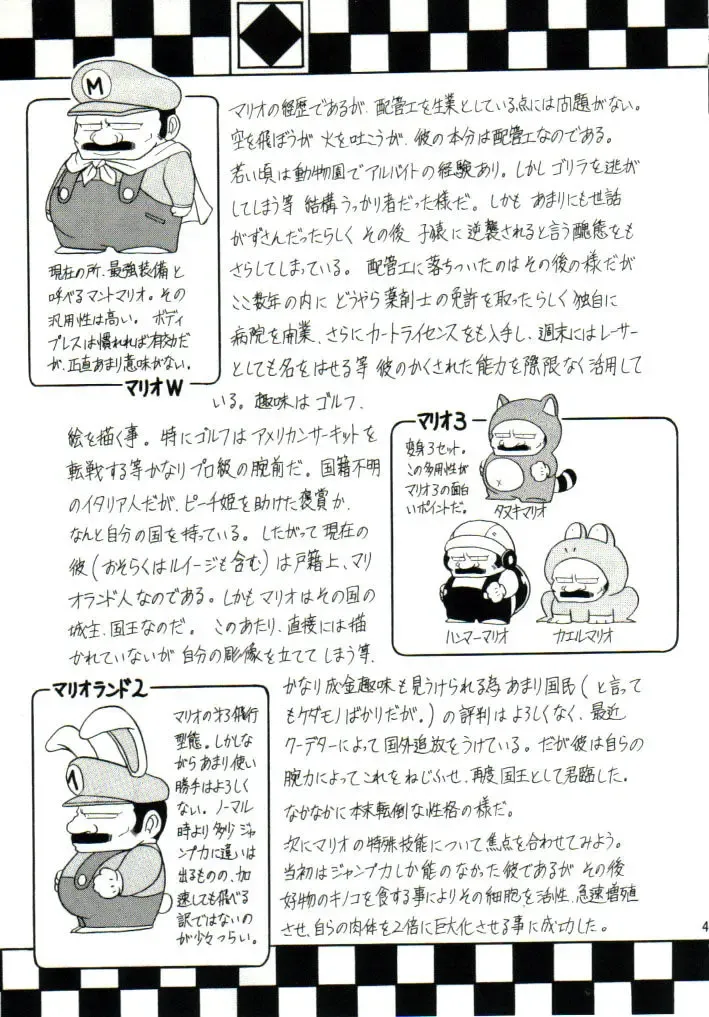 M
現在の所、最強装備と
呼べるマントマリオ。その
汎用性は高い。ボディ
プレスは慣れれば有効だ
が、正直あまり意味がない。
マリオW
マリオの経歴であるが、配管工を生業としている点には問題がない。
空を飛ぼうが火を吐こうが、彼の本分は配管工なのである。
若い頃は動物園でアルバイトの経験あり。しかしゴリラを逃が
してしまう等 結構うっかり者だった様だ。しかも あまりにも世話
がずさんだったらしく その後 子猿に逆襲されると言う醜態をも
さらしてしまっている。 配管工に落ちついたのはその後の様だが
ここ数年の内に どうやら薬剤士の免許を取ったらしく独自に
病院を開業、さらにカートライセンスをも入手し、週末にはレーサー
としても名をはせる等 彼のかくされた能力を際限なく活用して
いる。趣味はゴルフ、
絵を描く事。特にゴルフはアメリカンサーキットを
転戦する等かなりプロ級の腕前だ。国籍不明
のイタリア人だが、ピーチ姫を助けた褒賞か、
なんと自分の国を持っている。したがって現在の
彼(おそらくはルイージも含む)は戸籍上、マリ
オランド人なのである。しかもマリオはその国の
城主、国王なのだ。 このあたり、直接には描
かれていないが 自分の彫像を立ててしまう等、
マリオ3
変身3セット。
この多用性が
マリオ3の面白
いポイントだ。
タヌキマリオ
ハンマーマリオ
カエルマリオ
マリオランド2
マリオの才3飛行
型態。しかしな
がらあまり使い
勝手はよろしく
ない。ノーマル
時より多少ジャ
ンプ力に違いは
出るものの、加
速しても飛べる
訳ではないの
が少々つらい。
かなり成金趣味も見うけられる為あまり国民(と言って
もケダモノばかりだが。)の評判はよろしくなく、最近
クーデターによって国外追放をうけている。だが彼は自らの
腕力によってこれをねじふせ、再度国王として君臨した。
なかなかに本末転倒な性格の様だ。
次にマリオの特殊技能について焦点を合わせてみよう。
当初はジャンプ力しか能のなかった彼であるが その後
好物のキノコを食する事によりその細胞を活性、急速増殖
させ、自らの肉体を2倍に巨大化させる事に成功した。
4